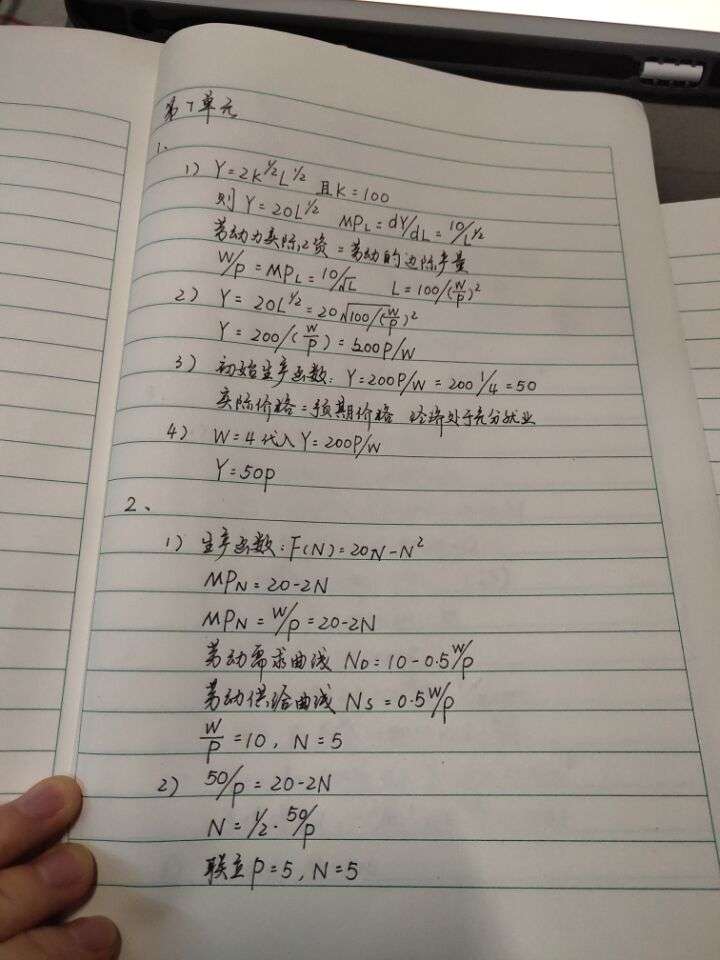 第7单元
1.
1) Y=2K^{1/2}L^{1/2} 且K=100
则 Y=20L^{1/2} MP_L=dY/dL=10/L^{1/2}
劳动力实际工资=劳动的边际产量
W/P=MP_L=10/√L L=100/(W/P)²
2) Y=20L^{1/2}=20√100/(W/P)²
Y=200/(W/P)=200P/W
3) 初始生产函数: Y=200P/W=200 1/4=50
实际价格=预期价格 经济处于充分就业
4) W=4代入Y=200P/W
Y=50P
2、
1) 生产函数: F(N)=20N-N²
MP_N=20-2N
MP_N=W/P=20-2N
劳动需求曲线 N_D=10-0.5W/P
劳动供给曲线 N_S=0.5W/P
W/P=10, N=5
2) 50/P=20-2N
N=1/2·50/P
联立P=5, N=5